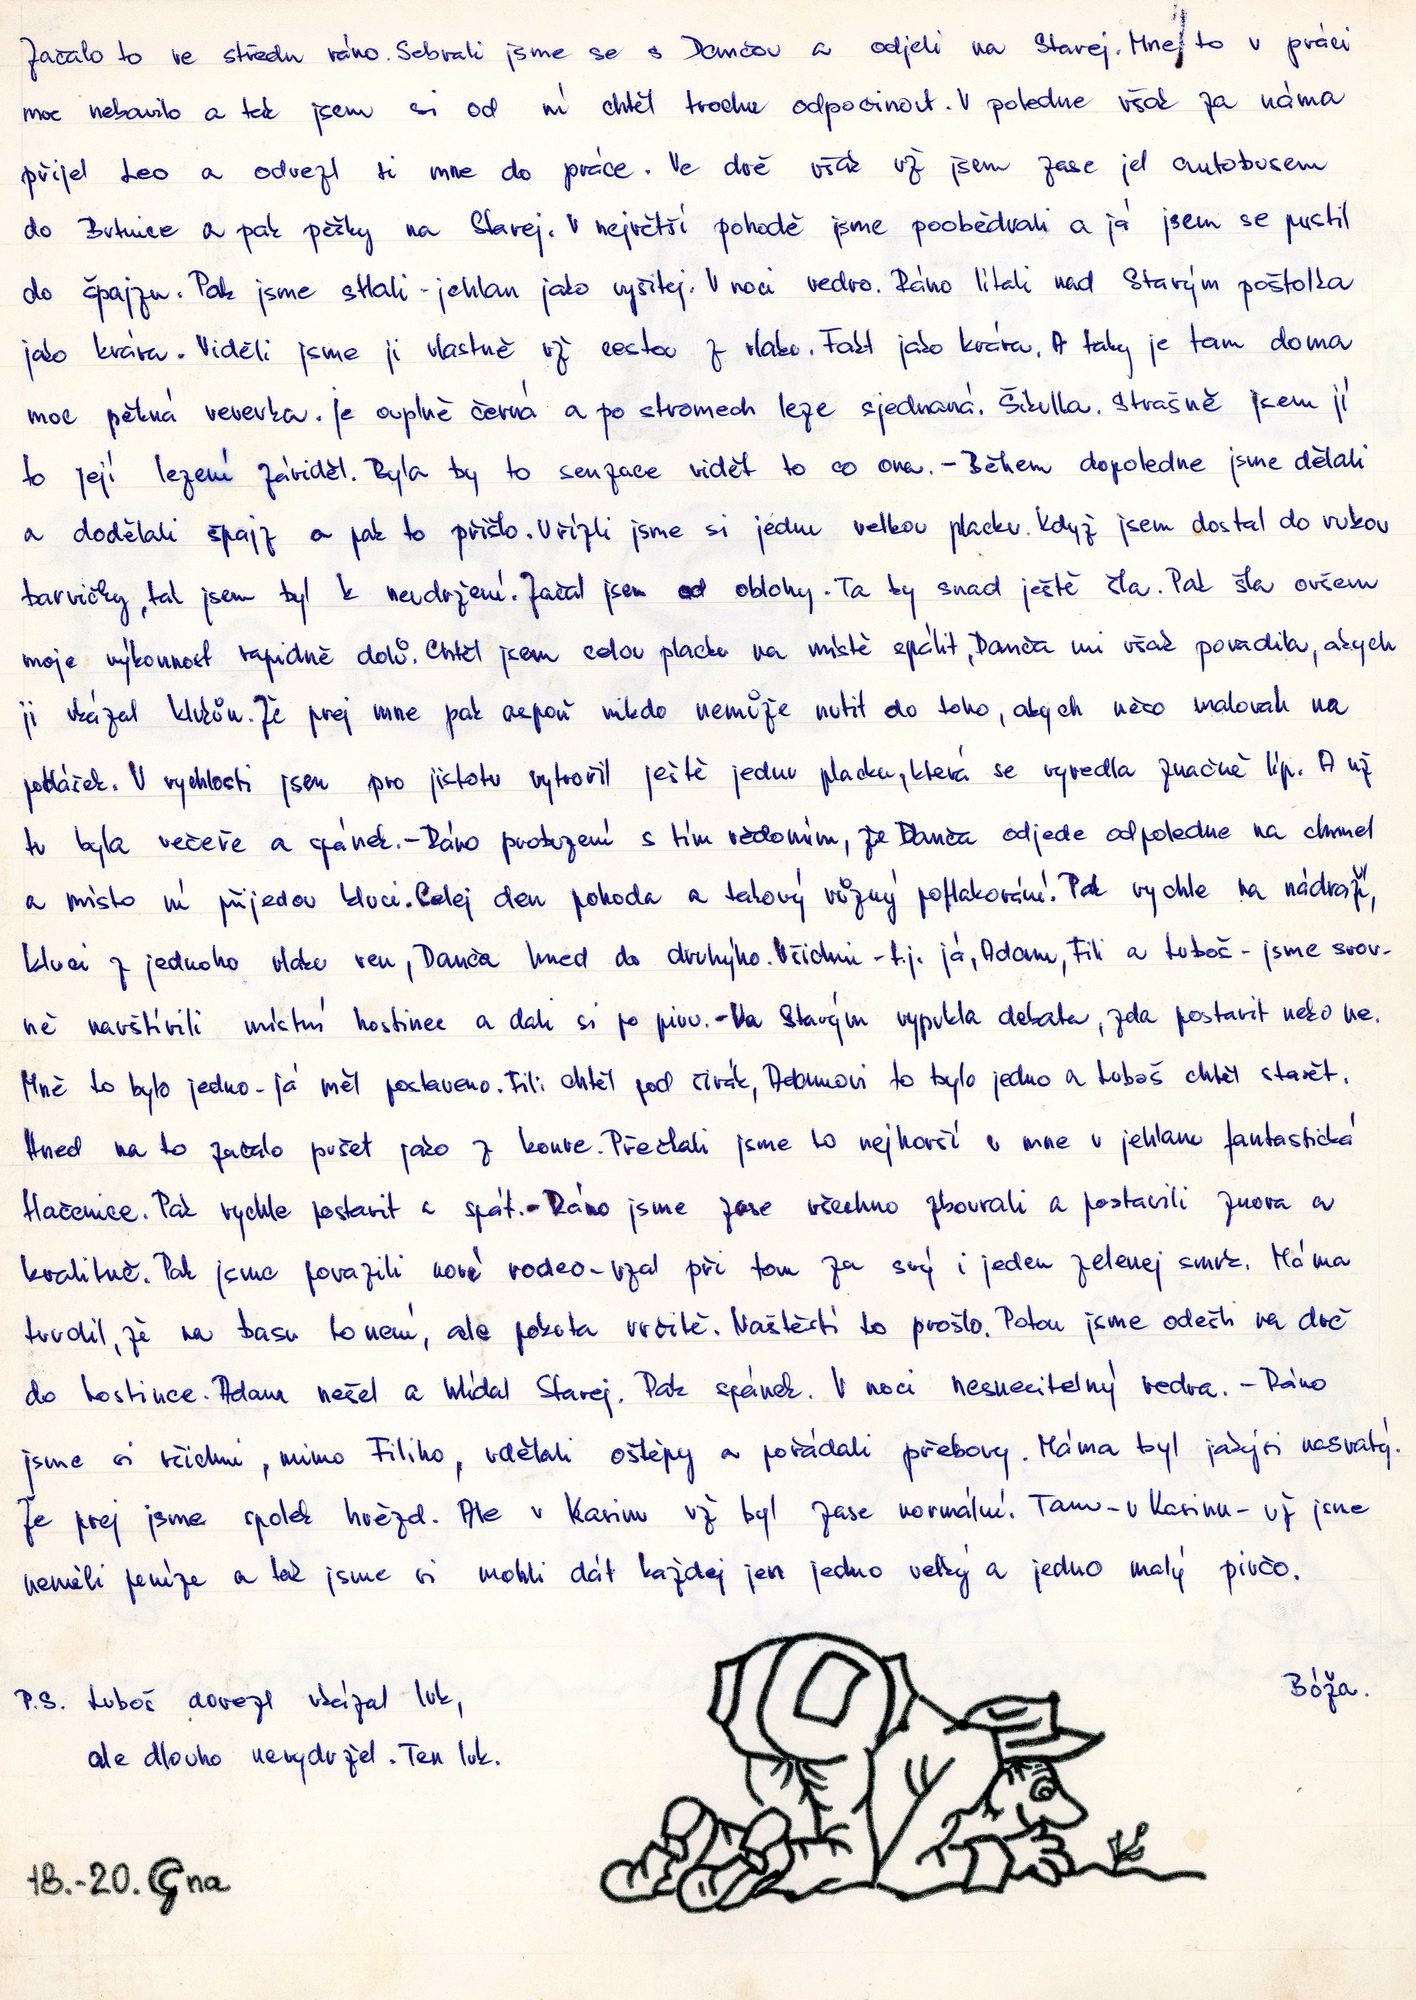 Začalo to ve středu ráno. Sebrali jsme se s Dančou a odjeli na Starej. Mne to v práci
moc nebavilo a tak jsem si od ní chtěl trochu odpočinout. V poledne však za náma
přijel Leo a odvezl si mne do práce. Ve dvě však už jsem zase jel autobusem
do Brtnice a pak pěšky na Starej. V největší pohodě jsme poobědvali a já jsem se pustil
do špajzu. Pak jsme stlali - jehlan jako vyšitej. V noci vedro. Ráno lítali nad Starým poštolka
jako kráva. Viděli jsme ji vlastně už cestou z vlaku. Fakt jako kráva. A taky je tam doma
moc pěkná veverka. Je ouplně černá a po stromech leze sjednaná. Šikulka. Strašně jsem jí
to její lezení záviděl. Byla by to senzace vidět to co ona. - Během dopoledne jsme dělali
a dodělali špajz a pak to přišlo. Uřízli jsme si jednu velkou placku. Když jsem dostal do rukou
barvičky, tak jsem byl k neudržení. Začal jsem od oblohy. Ta by snad ještě šla. Pak šla ovšem
moje výkonnost rapidně dolů. Chtěl jsem celou placku na místě spálit, Danča mi však poradila, abych
ji ukázal klukům. Že prej mne pak aspoň nikdo nemůže nutit do toho, abych něco maloval na
potlášek. V rychlosti jsem pro jistotu vytvořil ještě jednu placku, která se vyvedla značně líp. A už
tu byla večeře a spánek. - Ráno probuzení s tím vědomím, že Danča odjede odpoledne na chmel
a místo ní přijedou kluci. Celej den pohoda a takový různý poflakování. Pak rychle na nádraží,
kluci z jednoho vlaku ven, Danča hned do druhýho. Všichni - t.j. já, Adam, Fili a Luboš - jsme srov-
ně navštívili místní hostinec a dali si po pivu. - Na Starým vypukla debata, zda postavit nebo ne.
Mně to bylo jedno - já měl postaveno. Fili chtěl pod širák, Adamovi to bylo jedno a Luboš chtěl stavět.
Hned na to začalo pršet jako z konve. Přečkali jsme to nejhorší u mne v jehlanu fantastická
tlačenice. Pak rychle postavit a spát. - Ráno jsme zase všechno zbourali a postavili znova a
kvalitně. Pak jsme porazili nové rodeo - vzal při tom za svý i jeden zelenej smrk. Máma
tvrdil, že na basu to není, ale pokuta určitě. Naštěstí to prošlo. Potom jsme odešli na dvě
do hostince. Adam nešel a hlídal Starej. Pak spánek. V noci nesnesitelný vedra. - Ráno
jsme si všichni, mimo Filiho, udělali oštěpy a pořádali přebory. Máma byl jakýsi nasratý.
Že prej jsme spolek hvězd. Ale v Kasinu už byl zase normální. Tam - v Kasinu - už jsme
neměli peníze a tak jsme si mohli dát každej jen jedno velký a jedno malý pivčo.
Bóža.
P.S. Luboš dovezl ukázat luk,
ale dlouho nevydržel. Ten luk.
18.-20. Gna